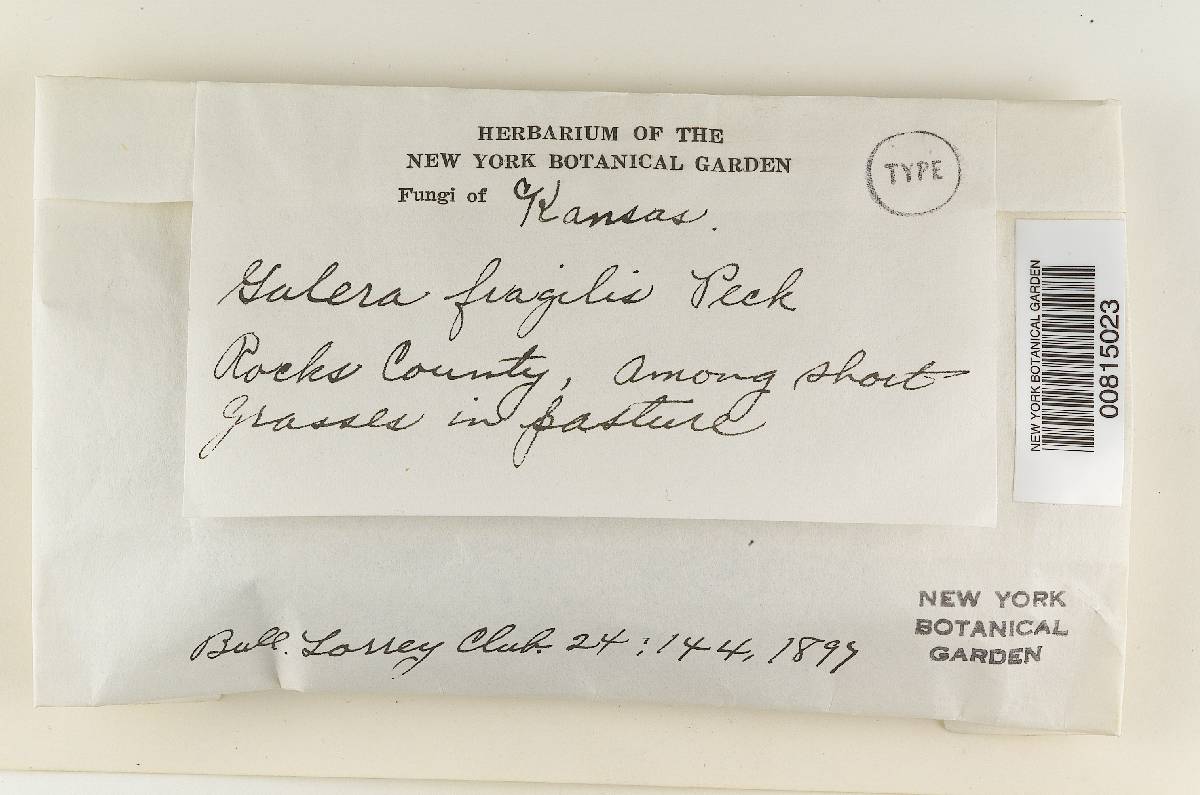 HERBARIUM OF THE
NEW YORK BOTANICAL GARDEN
Fungi of Kansas.
TYPE
Galera fragilis Peck
Rocks County, among short
grasses in pasture
NEW YORK BOTANICAL GARDEN
00815023
Bull. Torrey Club. 24:144, 1897
NEW YORK
BOTANICAL
GARDEN